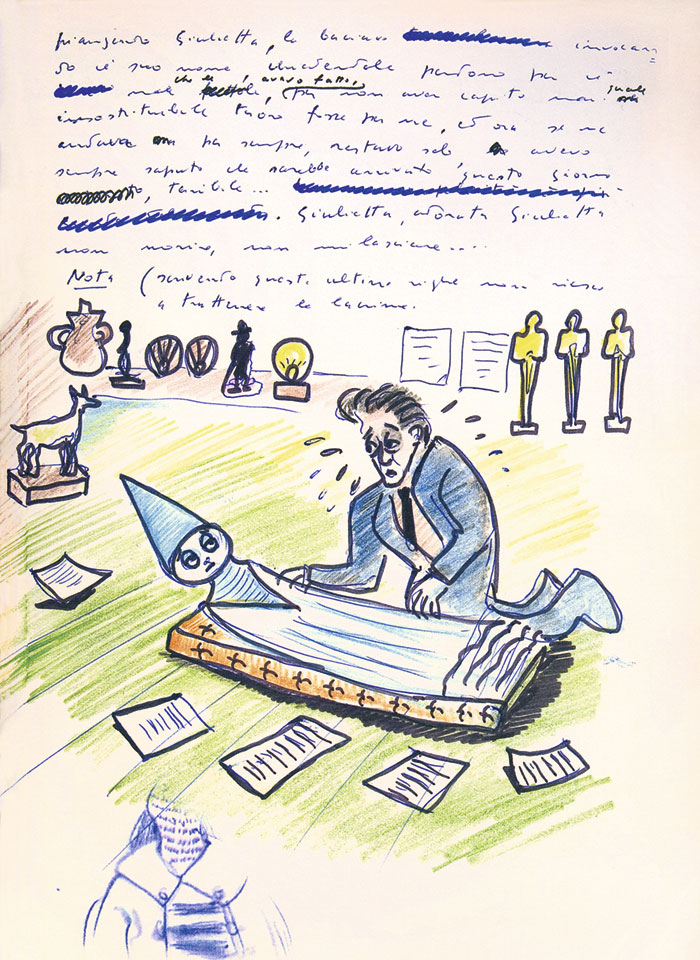 piangendo Giulietta, la baciavo invocan=
do il suo nome chiedendole perdono per il
che le avevo fatto,
male per non aver capito mai quale
insostituibile tesoro fosse per me, ed ora se ne
andava per sempre, restavo solo avevo
sempre saputo che sarebbe arrivato questo giorno
terribile... 
Giulietta, adorata Giulietta
non morire, non mi lasciare....
Nota (scrivendo queste ultime righe non riesco
a trattenere le lacrime.